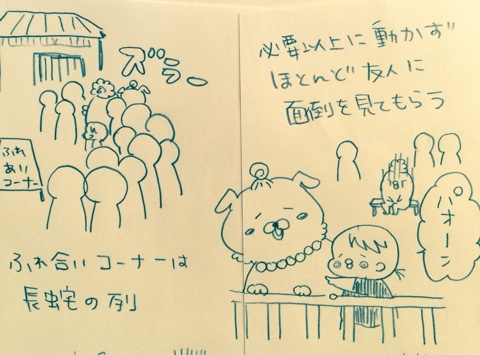 ズラー
ふれ
あい
コーナー
ふれ合いコーナーは
長蛇の列
必要以上に動かず
ほとんど友人に
面倒を見てもらう
パオーン